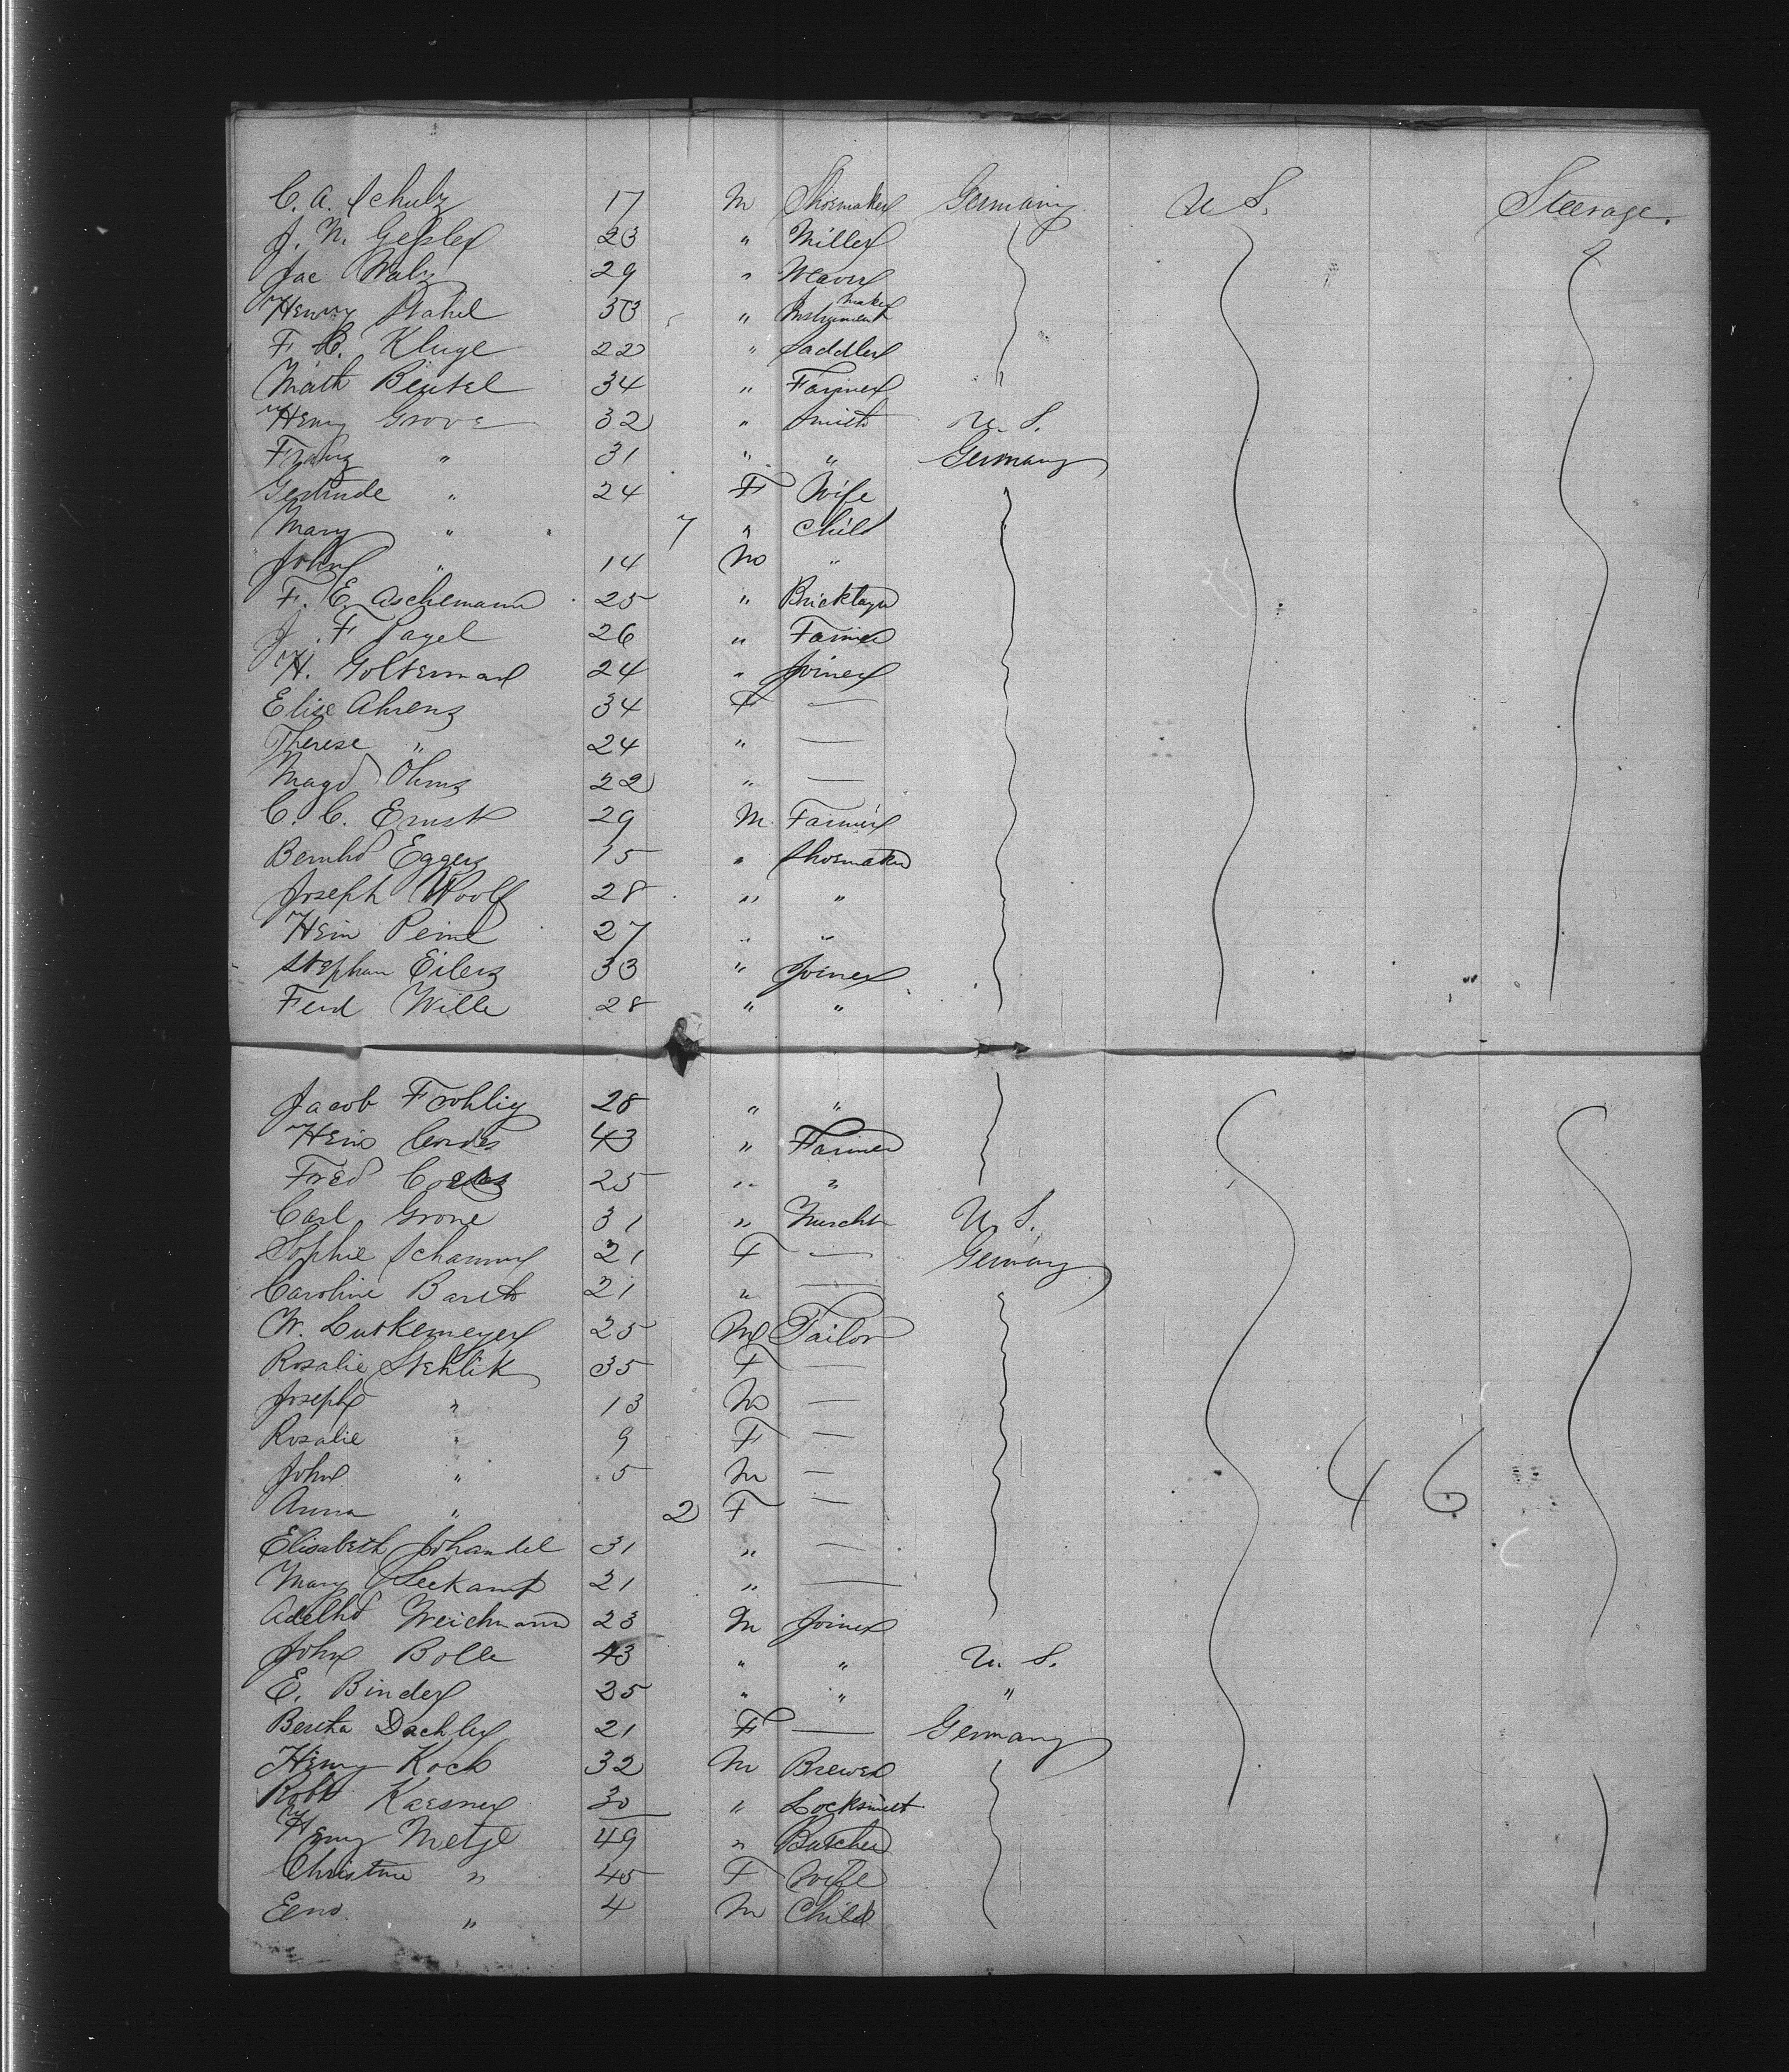 C. A. Schulz 17 M Shoemaker Germany U S. Steerage.
J. N. Geßler 23 " Miller
Jac Walz 29 " Weaver
Henry Stahel 33 " Instrument maker
F. C. Kluge 22 " Saddler
Math Beutel 34 " Farmer
Henry Grove 32 " Smith U. S.
Franz " 31 " " Germany
Gertrude " 24 F Wife
Mary " 7 " Child
John " 14 M "
F. E. Aschemann 25 " Bricklayer
J. F. Pagel 26 " Farmer
H. Golterman 24 " Joiner
Elise Ahrens 34 F —
Therese " 24 " —
Magd Ohms 22 " —
C. C. Ernst 29 M. Farmer
Bernhd Eggers 15 " Shoemaker
Joseph Woolf 28 " "
Hein Peine 27 " "
Stephan Eilers 33 " Joiner
Ferd Wille 28 " "
Jacob Frohlig 28 " "
Hein Cordes 43 " Farmer
Fred 25 " "
Carl Grone 31 " Mercht U. S.
Sophie 21 F — Germany
Caroline 21 " —
W. Lutkemeyer 25 M Tailor
Rosalie Stehlik 35 F —
Joseph " 13 M —
Rosalie " 9 F —
John " 5 M —
Anna " 2 F —
Elisabeth Johandel 31 " —
Mary Seekamp 21 " —
Adelhd Weichmann 23 M Joiner
John Bolle 43 " " U. S.
E. Binder 25 " " "
Bertha Dachler 21 F — Germany
Henry Koch 32 M Brewer
Robt Kaesner 30 " Locksmith
Henry Metze 49 " Butcher
Christine " 45 F Wife
Eeno " 4 M Child
46